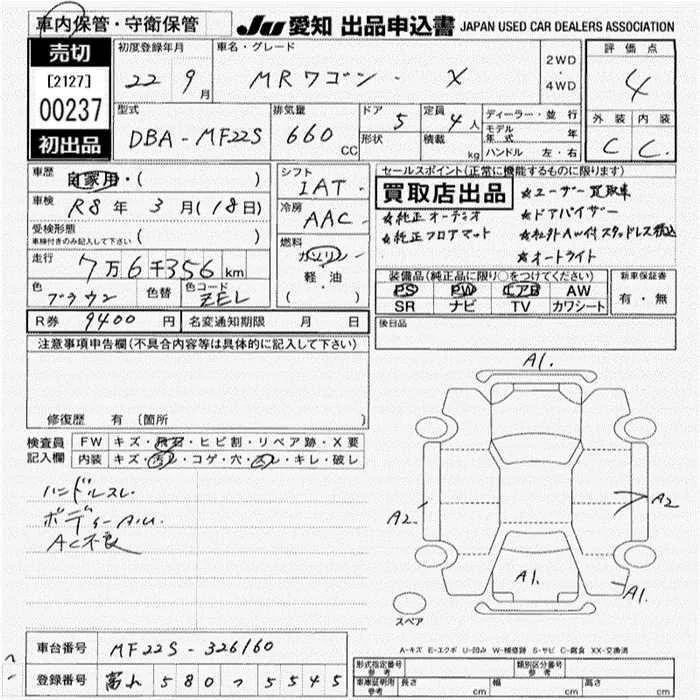 車内保管・守衛保管
JU 愛知 出品申込書 JAPAN USED CAR DEALERS ASSOCIATION
売切
[2127]
00237
初出品
初度登録年月
22 9月
車名・グレード
MRワゴン - X
2WD
・
4WD
評価点
4
外装 内装
C C
型式
DBA-MF22S
排気量
660 CC
ドア 5
形状
定員 4人
積載 kg
ディーラー・並行
モデル年式 年
ハンドル 左・右
車歴 自家用・( )
車検 R8年 3月(18日)
受検形態
車検付きのみ記入して下さい ( )
走行
7万6千356km
色 ブラウン 色替 色コード ZEL
シフト
IAT
冷房
AAC
燃料
ガソリン
軽油
( )
セールスポイント(正常に機能するものに限ります)
買取店出品
★純正オーディオ
★純正フロアマット
★ユーザー買取車
★ドアバイザー
★社外AW付スタッドレス積込
★オートライト
装備品(純正品に限り○をつけてください)
PS PW エアB AW
SR ナビ TV カワシート
新車保証書
有・無
R券 9400円 名変通知期限 月 日
後日品
注意事項申告欄(不具合内容等は具体的に記入して下さい)
修復歴 有 〔箇所 〕
検査員記入欄
FW キズ・飛石・ヒビ割・リペア跡・X要
内装 キズ・汚レ・コゲ・穴・スレ・キレ・破レ
ハンドルスレ
ボディーA.U.
AC不良
A1.
A2
A2
A1.
A1.
スペア
A-キズ E-エクボ U-凹み W-補修跡 S-サビ C-腐食 XX-交換済
車台番号 MF22S-326160
登録番号 580 つ 5545
形式指定番号 参考
類別区分番号 参考
車庫証明用 参考 長さ cm 幅 cm 高さ cm